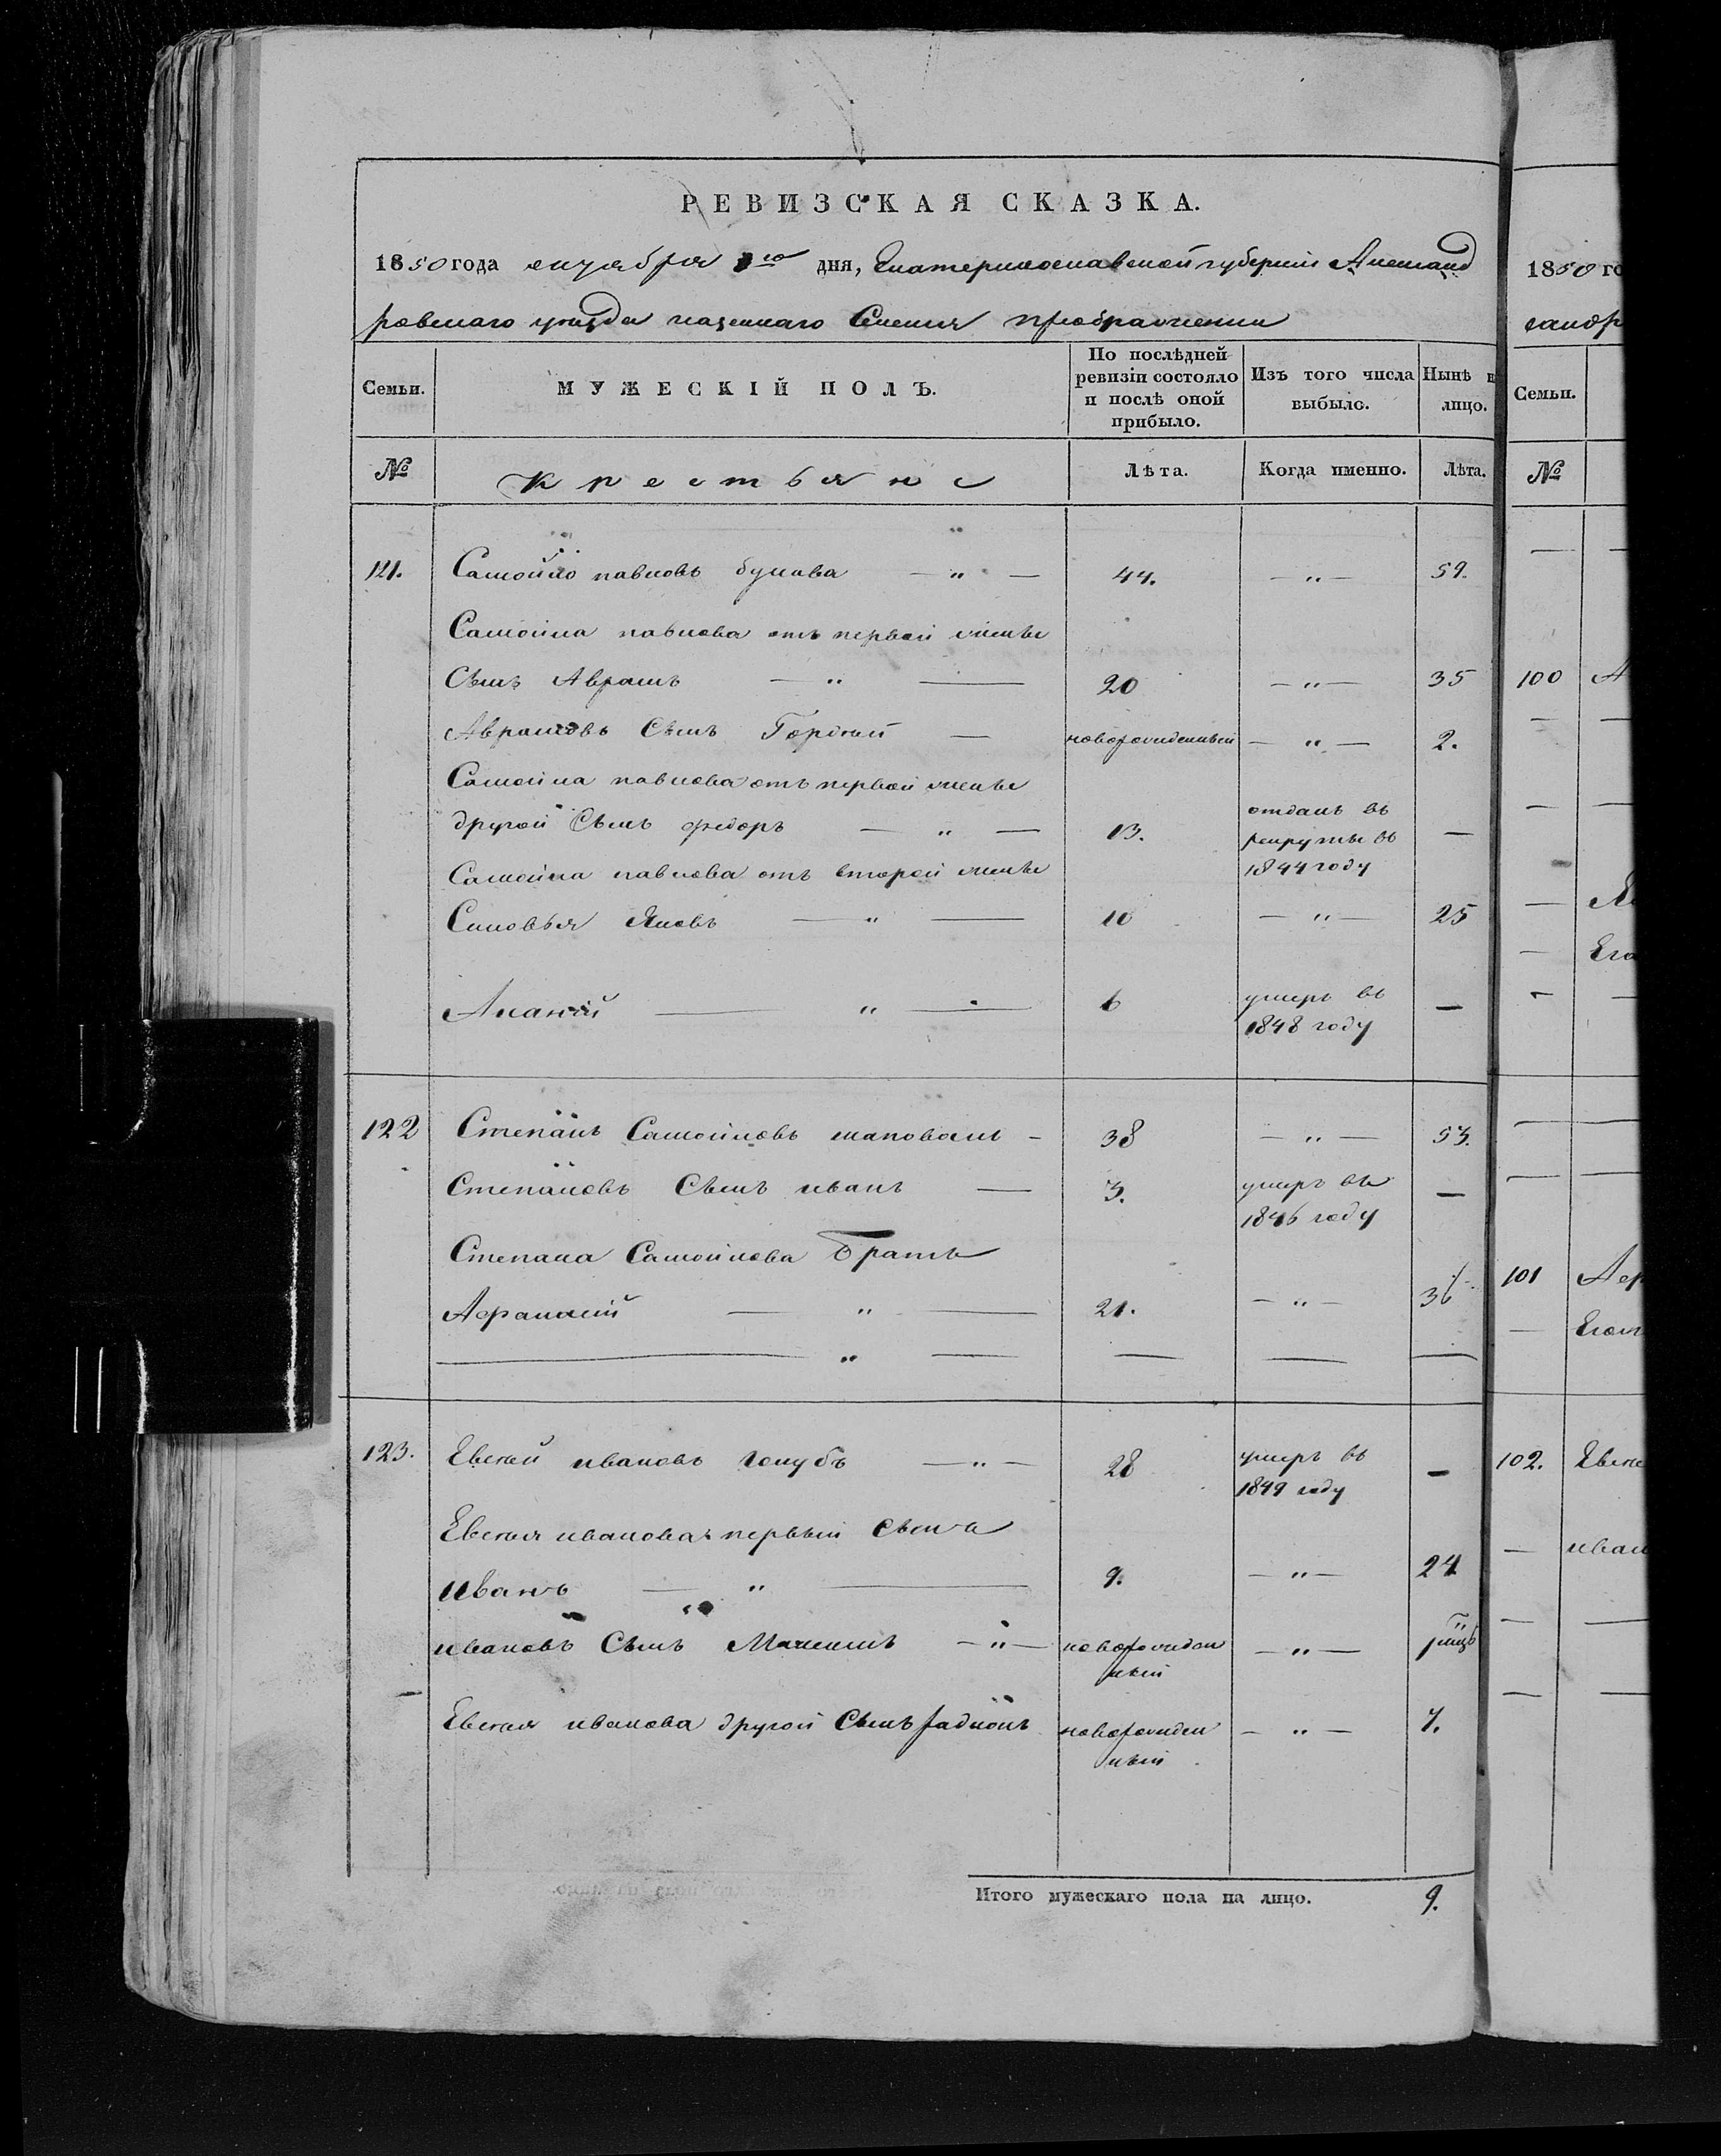 РЕВИЗСКАЯ СКАЗКА.
1850 года октября дня, Екатеринославской губерніи Александ
ровскаго уезда казеннаго Селенія преображенки
Семьи. МУЖЕСКІЙ ПОЛЪ. По послѣдней ревизіи состояло и послѣ оной прибыло. Изъ того числа выбыло. Нынѣ н лицо.
№ Крестьяне Лѣта. Когда именно. Лѣта.
121. Самойло павловъ булава — " — 44. — " — 59.
Самойла павлова отъ первой жены
Сынъ Аврамъ — " — 20 — " — 35
Аврамовъ Сынъ Гордѣй — новорожденный — " — 2.
Самойла павлова отъ первой жены
другой Сынъ федоръ — " — 13. отданъ въ рекруты въ 1844 году —
Самойла павлова отъ второй жены
Синовья Яковъ — " — 10 — " — 25
Ананій — " — 6 умеръ въ 1848 году —
122 Степанъ Самойловъ шаповалъ - 38 — " — 53.
Степановъ Сынъ иванъ — 3. умеръ въ 1846 году —
Степана Самойлова Братъ
Афанасій — " — 21. — " — 36
— " — — — —
123. Евсей ивановъ голубъ — " — 28 умеръ въ 1849 году —
Евсея иванова первый Сынъ
Иванъ — " — 9. — " — 24
ивановъ Сынъ Максимъ — " — новорожден ный — " —
Евсея иванова другой Сынъ радионъ новорожден ный — " — 7.
Итого мужескаго пола на лицо. 9.
1850 го
сандр
Семьи.
№
100 А
Як
Его
101 Аф
102. Евсе
иван